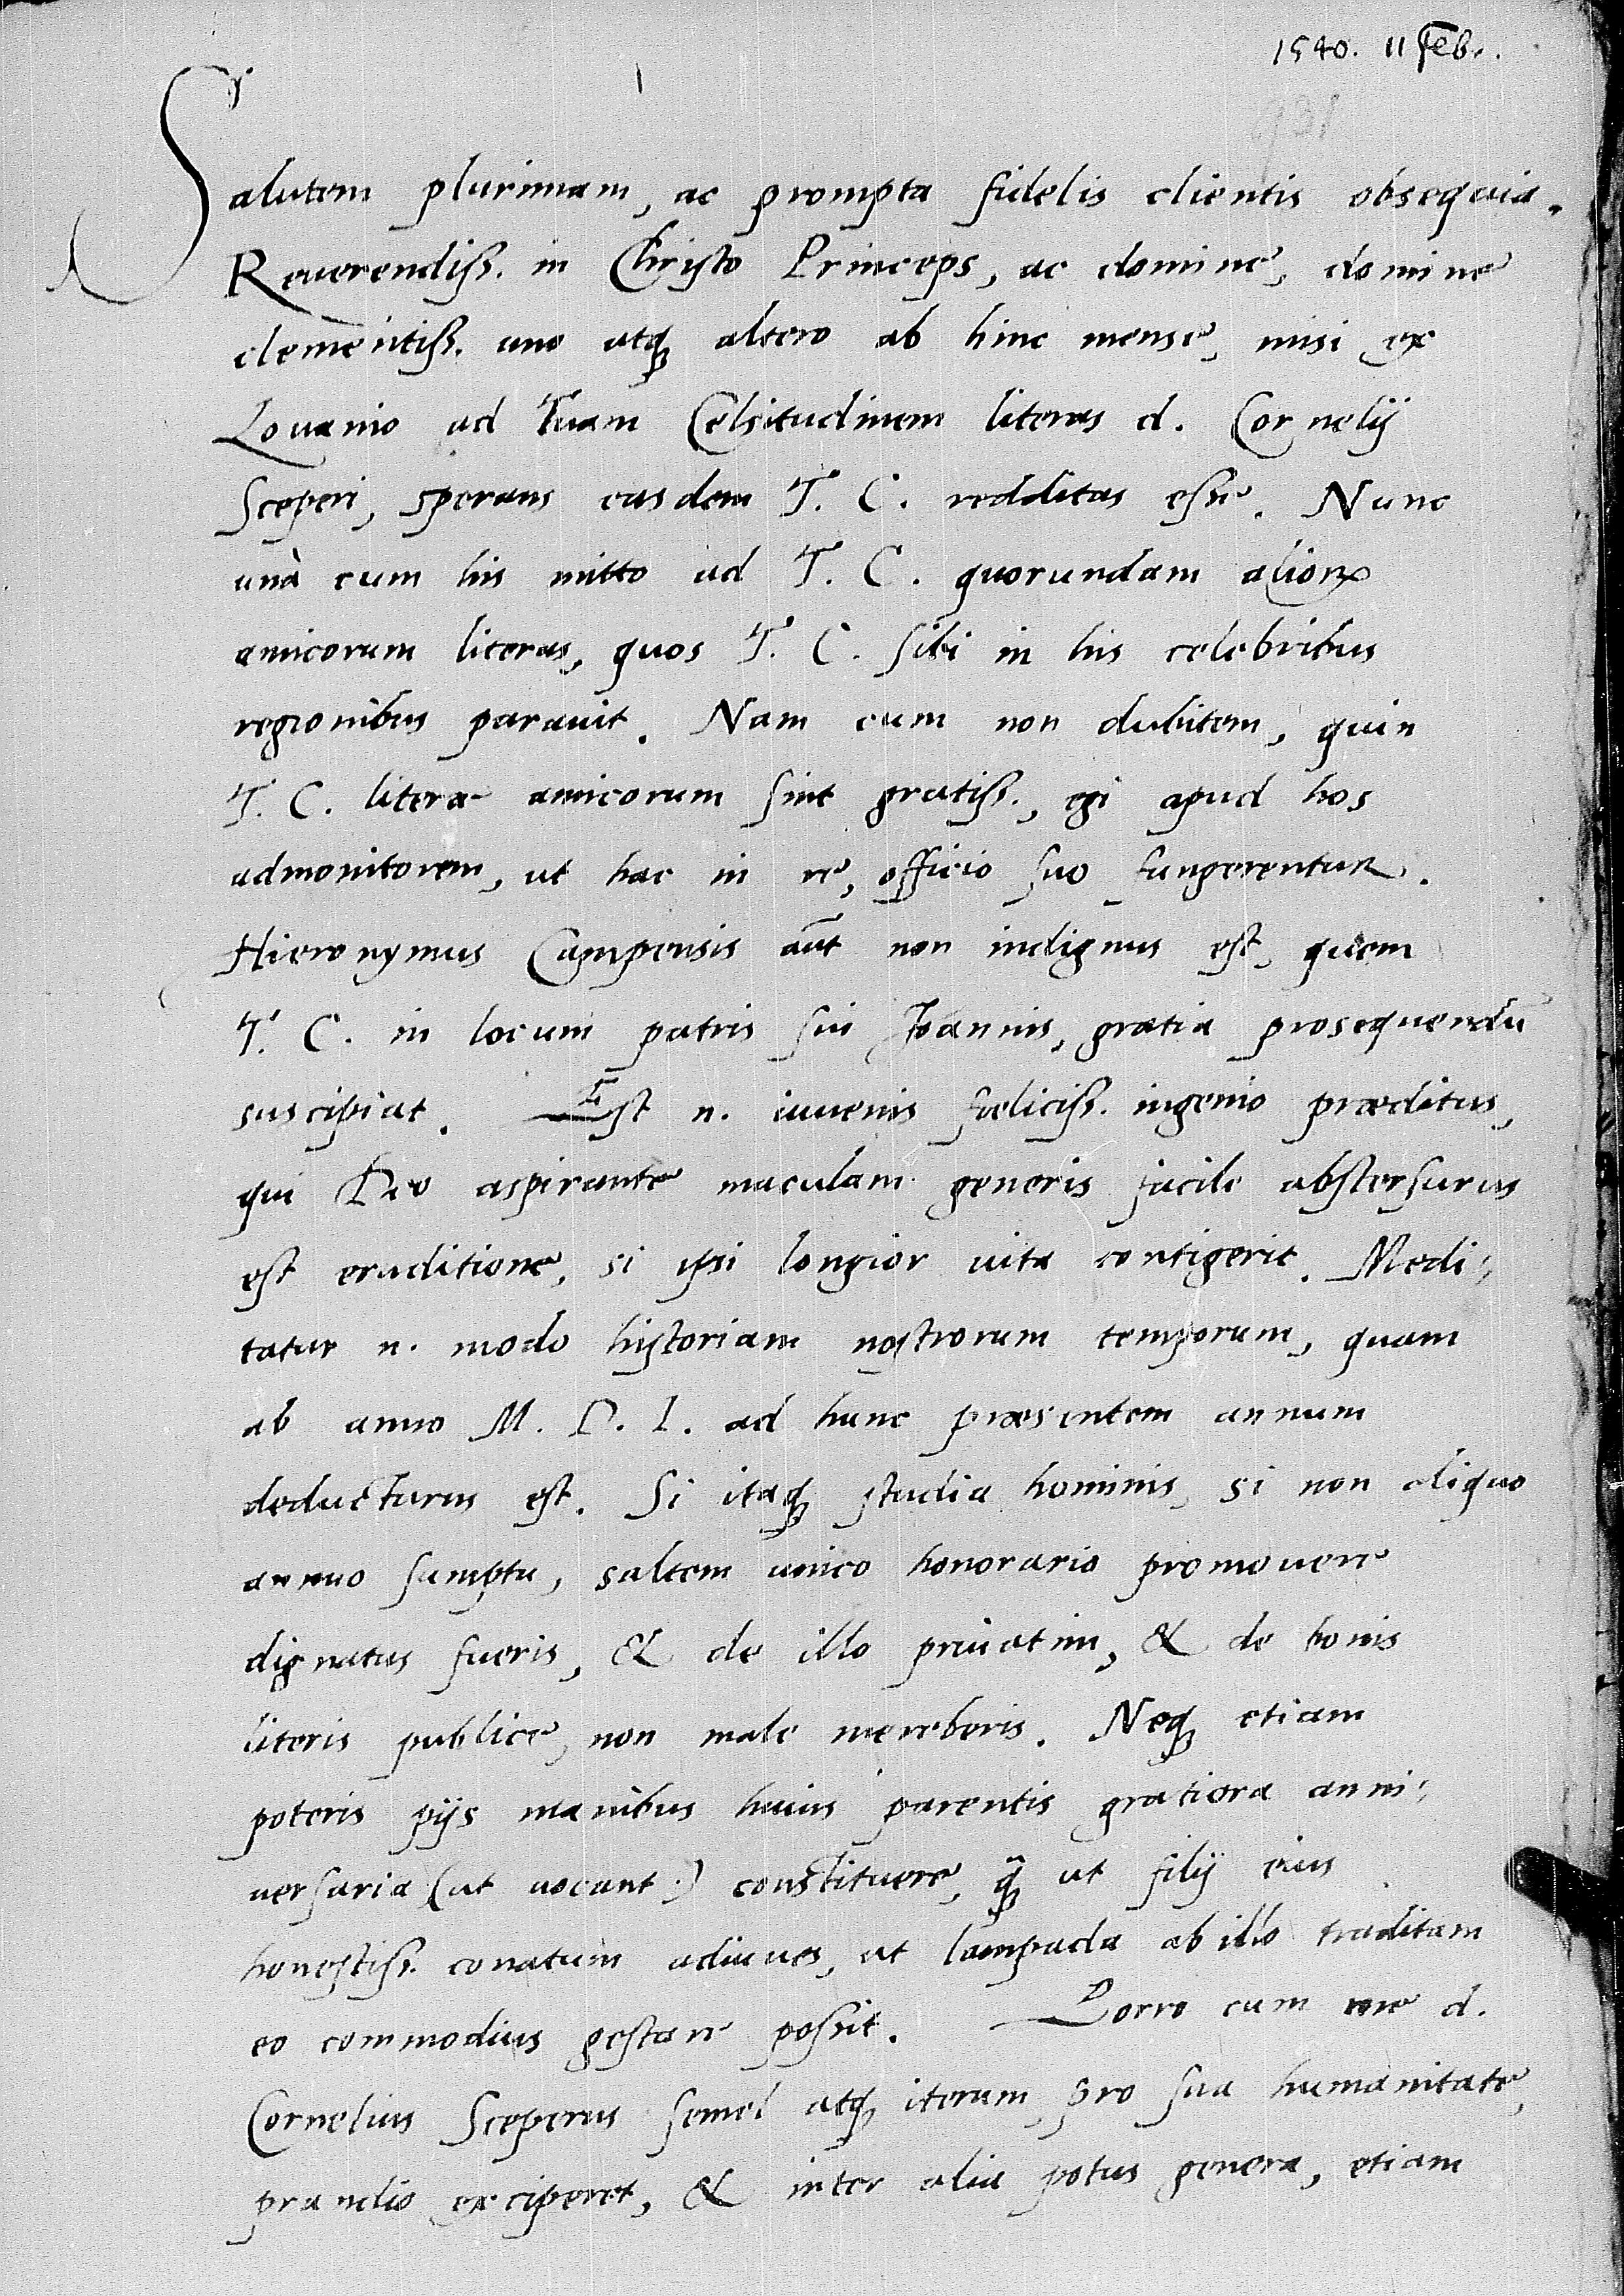 1540. 11 Feb.
Salutem plurimam, ac prompta fidelis clientis obsequia.
Reuerendiss. in Christo Princeps, ac domine, domine
clementiss. uno atq; altero ab hinc mense, misi ex
Louanio ad Tuam Celsitudinem literas d. Cornelij
Sceperi, sperans easdem T. C. redditas esse. Nunc
unà cum his mitto ad T. C. quorundam alioꝝ
amicorum literas, quos T. C. sibi in his celebribus
regionibus parauit. Nam cum non dubitem, quin
T. C. literæ amicorum sint gratiss., egi apud hos
admonitorem, ut hac in re, officio suo fungerentur.
Hieronymus Campensis aūt non indignus est, quem
T. C. in locum patris sui Joannis, gratia prosequendū
suscipiat. Est n. iuuenis fœliciss. ingenio præditus,
qui Deo aspirante maculam generis facile abstersurus
est eruditione, si ipsi longior uita contigerit. Medi-
tatur n. modo historiam nostrorum temporum, quam
ab anno M. D. I. ad hunc præsentem annum
deducturus est. Si itaq; studia hominis, si non aliquo
annuo sumptu, saltem unico honorario promouere
dignatus fueris, & de illo priuatim, & de bonis
literis publice, non male mereberis. Neq; etiam
poteris pijs manibus huius parentis gratiora anni-
uersaria (ut uocant) constituere, q̃; ut filij eius
honestiss. conatum adiuues, ut lampada ab illo traditam
eo commodius gestare possit. Porro cum me d.
Cornelius Sceperus semel atq; iterum, pro sua humanitate,
prandio exciperet, & inter alia potus genera, etiam